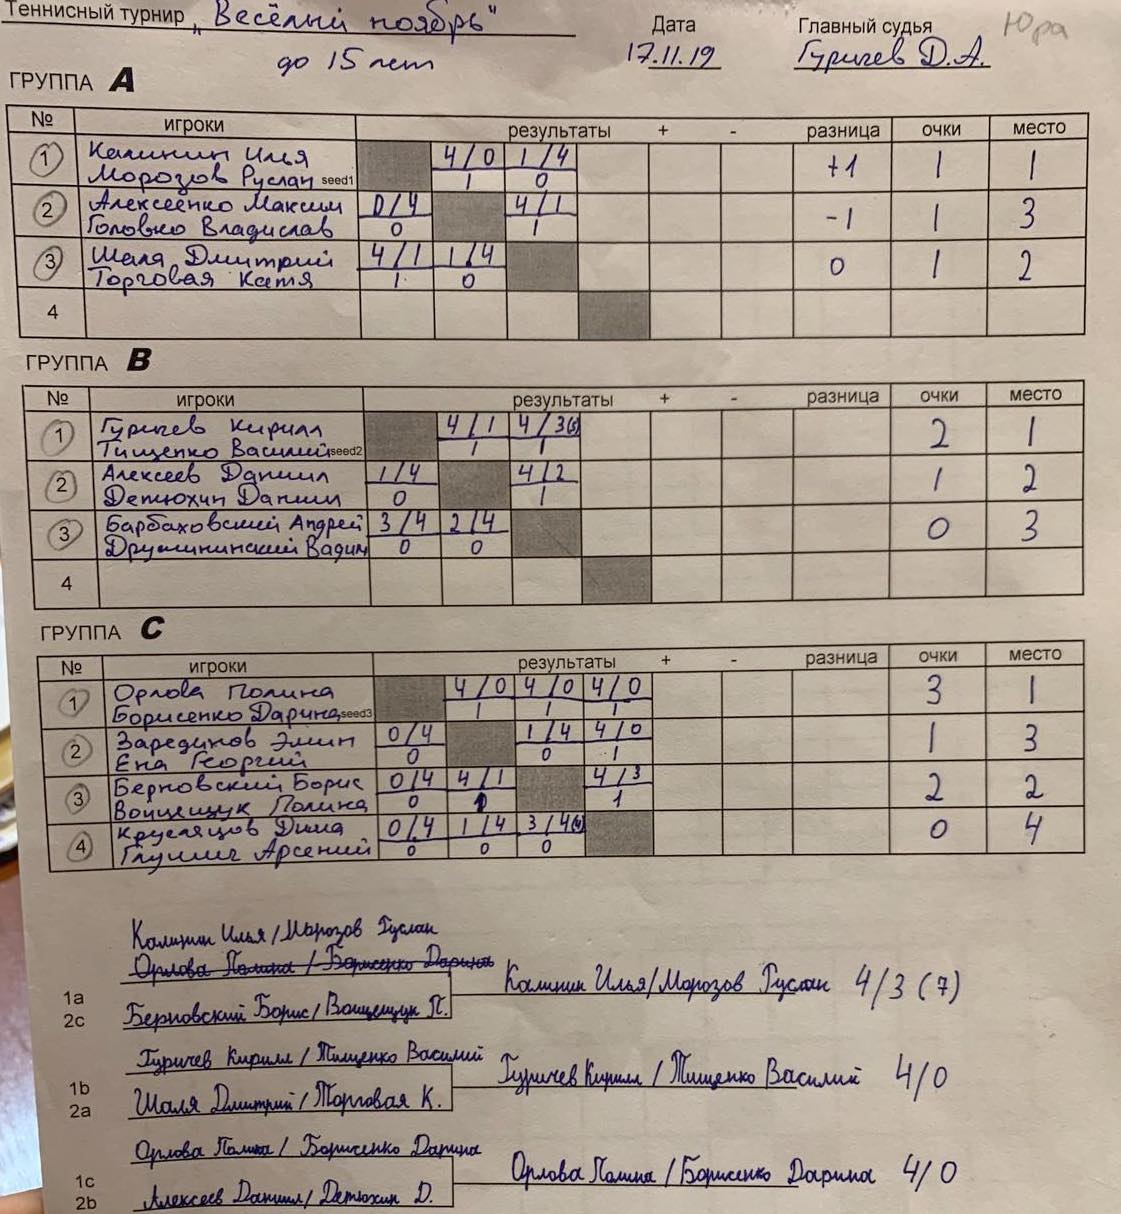 Теннисный турнир „Весёлый ноябрь"
до 15 лет
Дата
17.11.19
Главный судья
Гуричев Д.А.
Юра
ГРУППА A
№ игроки результаты + - разница очки место
1 Калинин Илья 4/0 1/4 +1 1 1
Морозов Руслан seed1 1 0
2 Алексеенко Максим 0/4 4/1 -1 1 3
Головко Владислав 0 1
3 Шаля Дмитрий 4/1 1/4 0 1 2
Торговая Катя 1 0
4
ГРУППА B
№ игроки результаты + - разница очки место
1 Гуричев Кирилл 4/1 4/3(5) 2 1
Тищенко Василий seed2 1 1
2 Алексеев Даниил 1/4 4/2 1 2
Детюхин Даниил 0 1
3 Барбаховский Андрей 3/4 2/4 0 3
Дружининский Вадим 0 0
4
ГРУППА C
№ игроки результаты + - разница очки место
1 Орлова Полина 4/0 4/0 4/0 3 1
Борисенко Дарина seed3 1 1 1
2 Зарединов Эмин 0/4 1/4 4/0 1 3
Ена Георгий 0 0 1
3 Берновский Борис 0/4 4/1 4/3 2 2
Войцещук Полина 0 1 1
4 Дима 0/4 1/4 3/4(4) 0 4
Арсений 0 0 0
Калинин Илья/Морозов Руслан
Орлова Полина / Борисенко Дарина
1a
2c
Берновский Борис/Войцещук П.
Калинин Илья/Морозов Руслан 4/3 (7)
Гуричев Кирилл / Тищенко Василий
1b
2a
Шаля Дмитрий/Торговая К.
Гуричев Кирилл / Тищенко Василий 4/0
Орлова Полина / Борисенко Дарина
1c
2b
Алексеев Даниил/Детюхин Д.
Орлова Полина /Борисенко Дарина 4/0